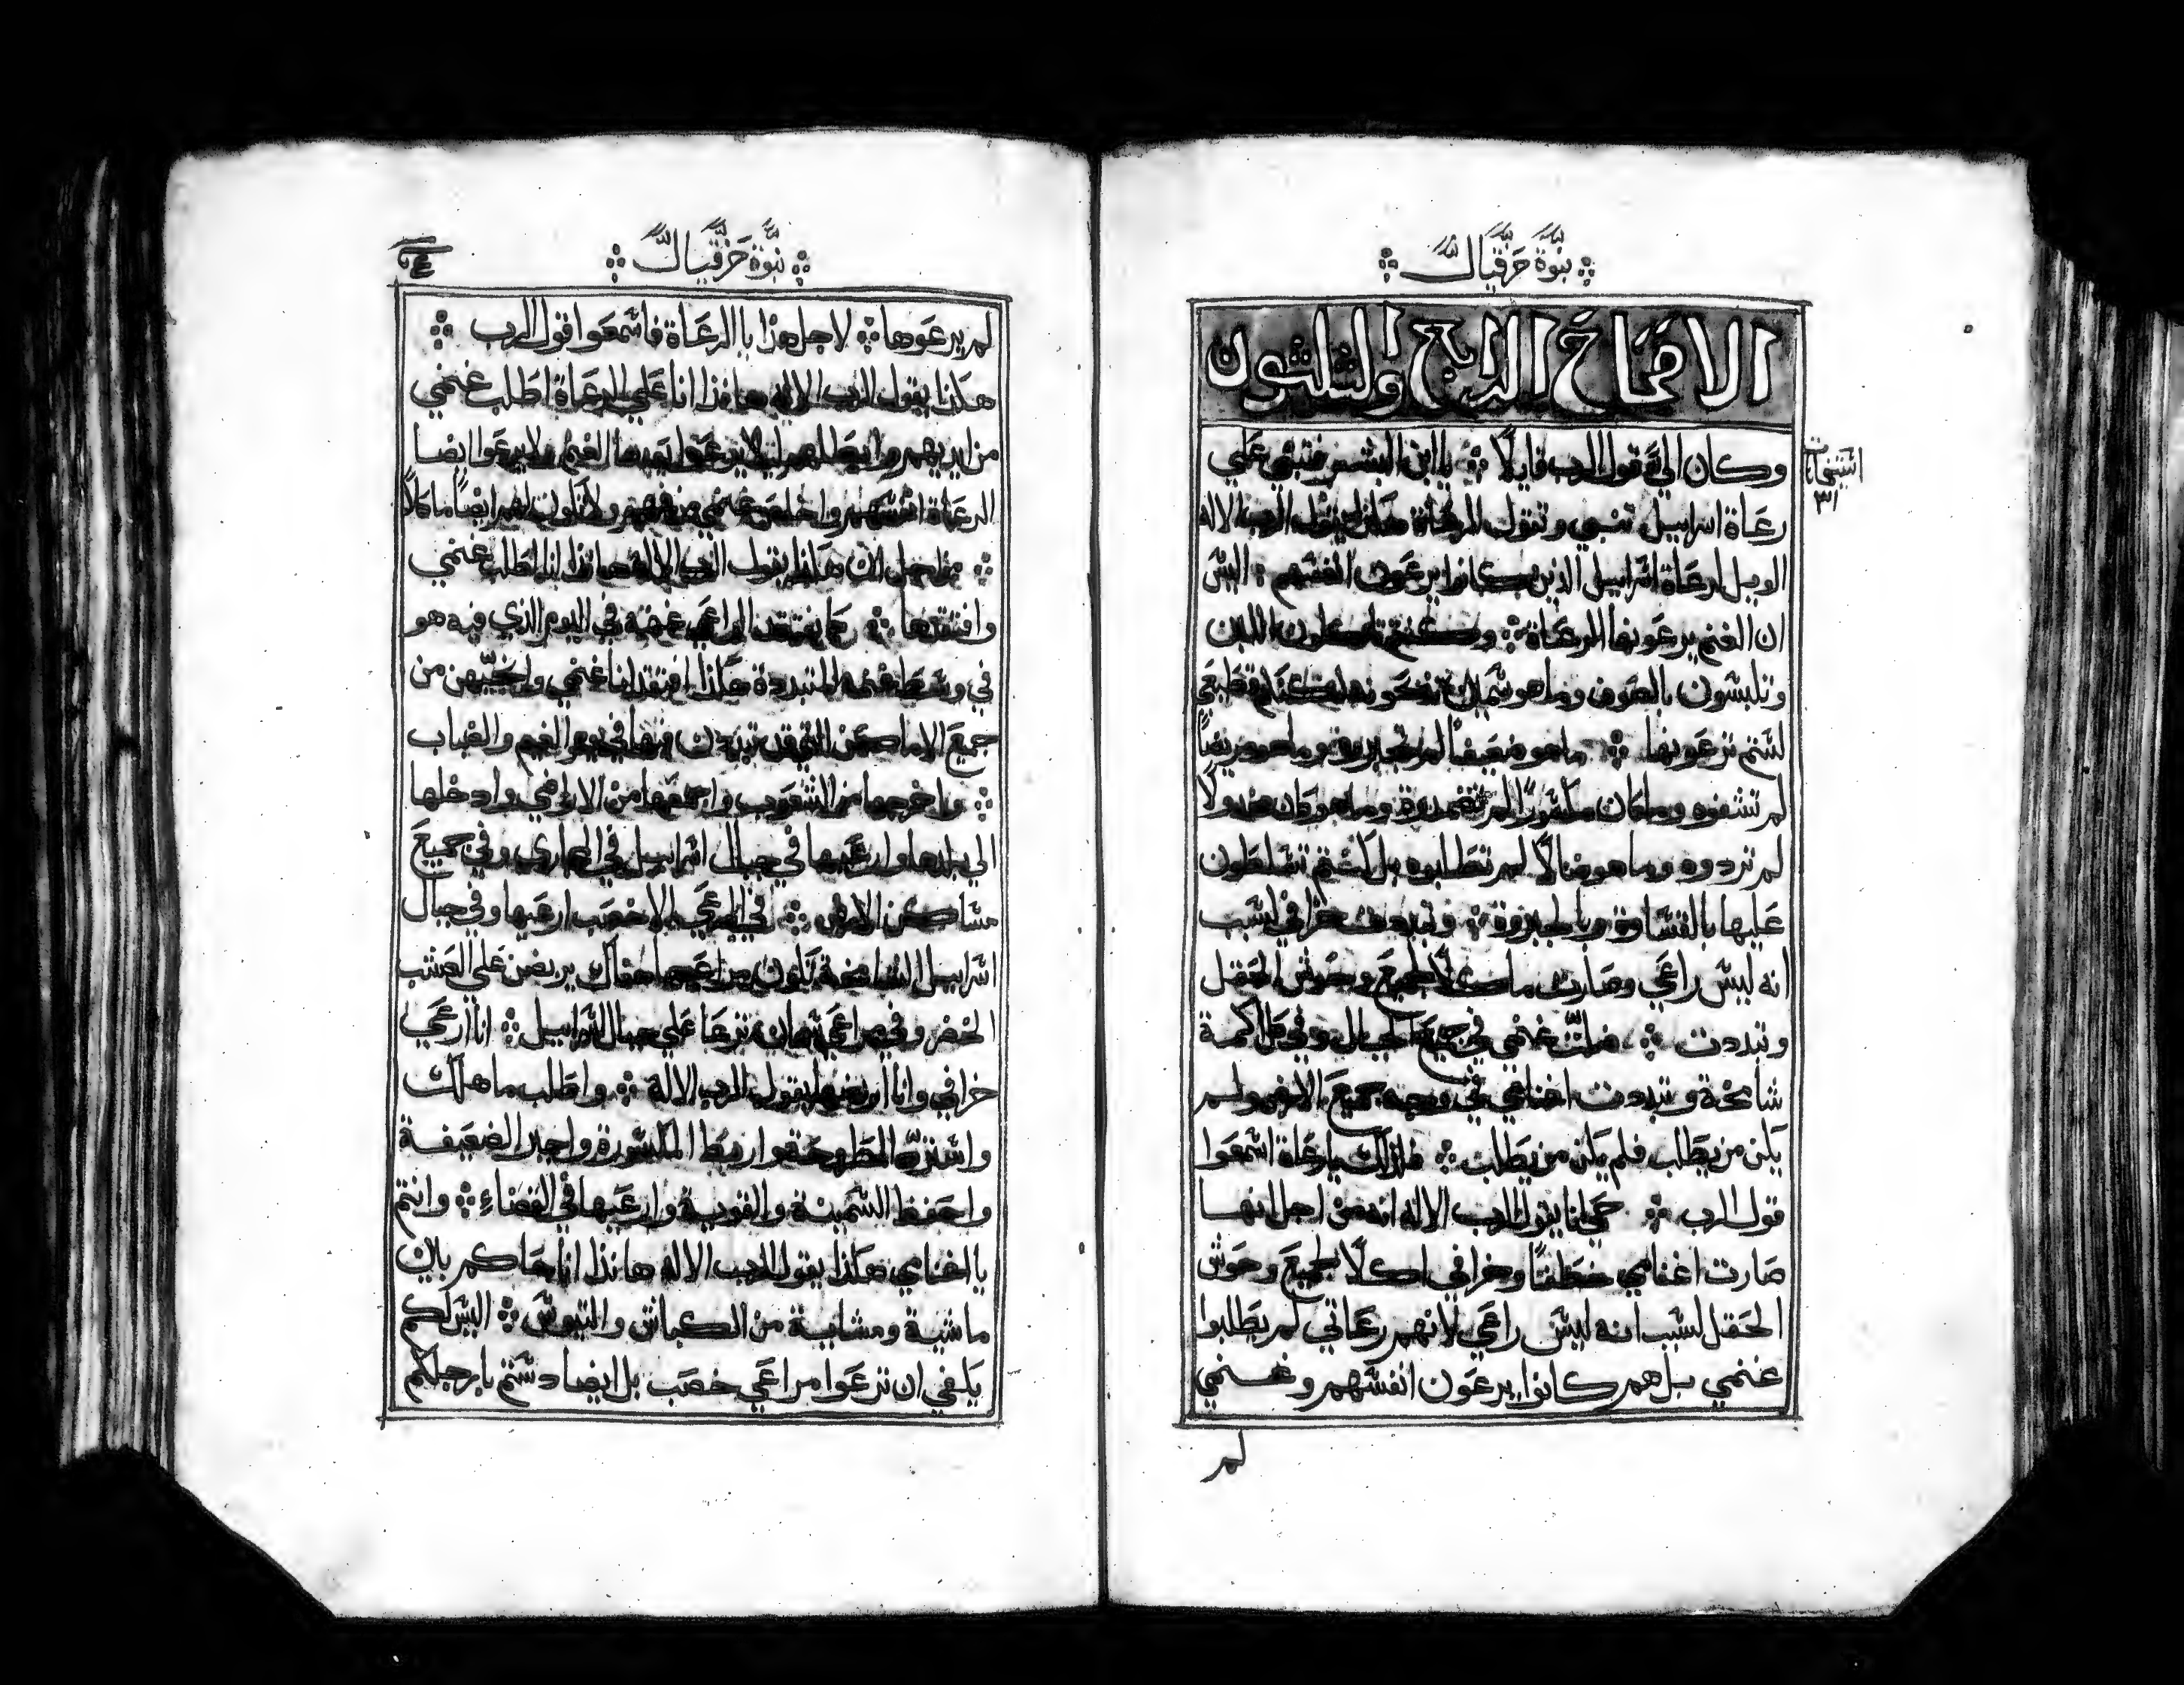 نبوة حزقيال
الاصحاح الرابع والثلثون
وكان الي قول الرب قايلا يا ابن البشر فتنبي علي
رعاة اسراييل تنبي وتقول للرعاة هكذا يقول الرب الاله
الويل لرعاة اسراييل الذين كانوا يرعون انفسهم اليس
ان الغنم يرعونها الرعاة وكنتم تاكلون اللبن
وتلبسون بالصوف وما هو سمين تذبحونه لكن قطيعي
لستم ترعونها ما هو ضعيفا لم تجبروه وما هو مريضا
لم تشفوه وما كان مكسورا لم تضمدوه وما هو كان
لم تردوه وما هو ضالا لم تطلبوه بل كنتم تتسلطون
عليها بالقساوة وبالجبروة وتبددت خرافي لسبب
انه ليس راعي وصارت ماكلا لجميع وحوش الحقل
وتبددت ضلت غنمي في جميع الجبال وفي كل اكمة
شامخة وتبددت اغنامي في وجه جميع الارض ولم
يكن من يطلب فلم يكن من يطلب فلذلك يا رعاة اسمعوا
قول الرب حي انا يقول الرب الاله انه من اجل انها
صارت اغنامي خطفا وخرافي اكلا لجميع وحوش
الحقل لسبب انه ليس راعي لانهم رعاتي لم يطلبوا
غنمي بل هم كانوا يرعون انفسهم وغنمي
لم
نبوة حزقيال
لم يرعوها لاجل هذا يا الرعاة فاسمعوا قول الرب
هكذا يقول الرب الاله هانذا انا علي الرعاة اطلب غنمي
من ايديهم وابطلهم ان لا يرعوا بعدها الغنم ولا يرعوا ايضا
الرعاة انفسهم واخلص غنمي من فمهم ولا تكون لهم ايضا ماكلا
من اجل ان هكذا يقول الرب الاله هانذا انا اطلب غنمي
وافتقدها كما يفتقد الراعي غنمه في اليوم الذي فيه هو
في وسط غنمه المتبددة هكذا افتقد انا غنمي وانجيهن من
جميع الاماكن التي قد تبددت فيها في يوم الغيم والضباب
واخرجها من الشعوب واجمعها من الاراضي وادخلها
الي بلدها وارعيها في جبال اسراييل في المجاري وفي جميع
مساكن الارض في المرعي الاخصب ارعيها وفي جبال
اسراييل الشامخة تكون مراعيها هناك يربضن علي العشب
الخضر وفي مراعي سمان ترعا علي جبال اسراييل انا ارعي
خرافي وانا اربضها يقول الرب الاله واطلب ما هلك
واسترد المطروحة واربط المكسورة واجبر الضعيفة
واحفظ السمينة والقوية وارعيها في القضاء وانتم
يا اغنامي هكذا يقول الرب الاله هانذا انا احاكم بين
ماشية وماشية من الكباش والتيوس اليس لكم
يكفي ان ترعوا مراعي خصب بل ايضا دستم بارجلكم